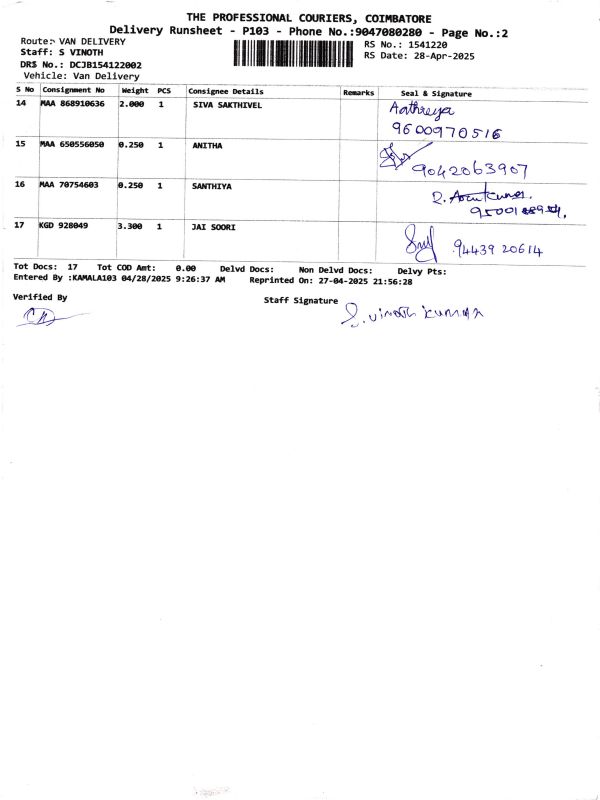 THE PROFESSIONAL COURIERS, COIMBATORE
Delivery Runsheet - P103 - Phone No.:9047080280 - Page No.:2
Route: VAN DELIVERY
RS No.: 1541220
Staff: S VINOTH
RS Date: 28-Apr-2025
DRS No.: DCJB154122002
Vehicle: Van Delivery
S No Consignment No Weight PCS Consignee Details Remarks Seal & Signature
14 MAA 868910636 2.000 1 SIVA SAKTHIVEL Aathreya
9600970516
15 MAA 650556050 0.250 1 ANITHA
9042063907
16 MAA 70754603 0.250 1 SANTHIYA R. Arunkumar.
17 KGD 928049 3.300 1 JAI SOORI
94439 20614
Tot Docs: 17 Tot COD Amt: 0.00 Delvd Docs: Non Delvd Docs: Delvy Pts:
Entered By :KAMALA103 04/28/2025 9:26:37 AM Reprinted On: 27-04-2025 21:56:28
Verified By
Staff Signature S. vinoth kumar